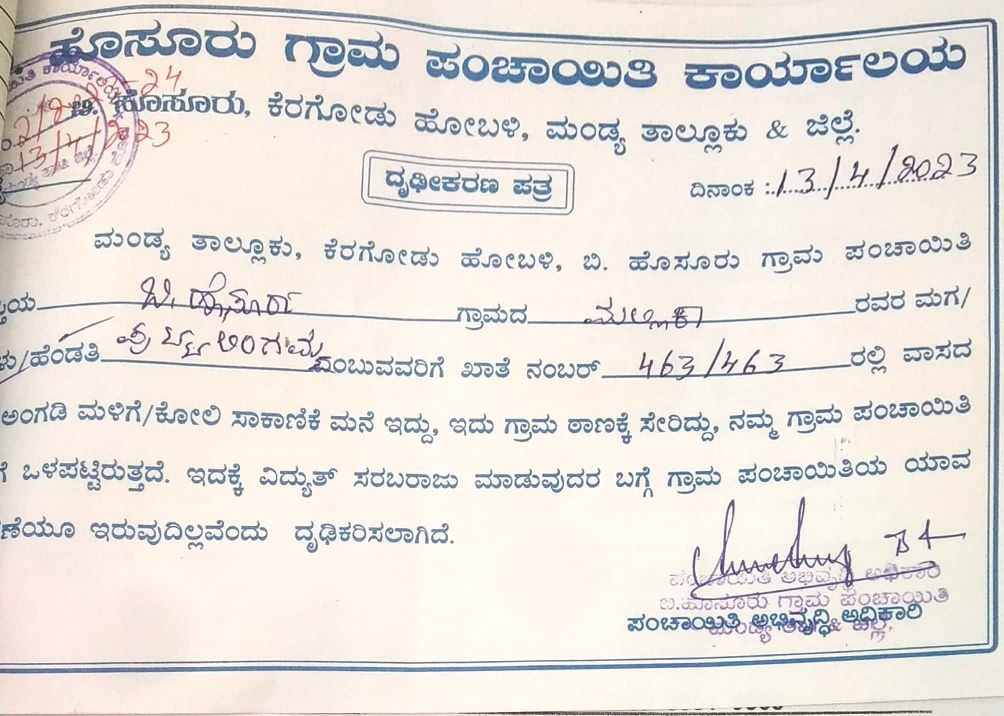 ಹೊಸೂರು ಗ್ರಾಮ ಪಂಚಾಯಿತಿ ಕಾರ್ಯಾಲಯ
ಬಿ. ಹೊಸೂರು, ಕೆರಗೋಡು ಹೋಬಳಿ, ಮಂಡ್ಯ ತಾಲ್ಲೂಕು & ಜಿಲ್ಲೆ.
13/4/2023
ದೃಢೀಕರಣ ಪತ್ರ
ದಿನಾಂಕ : 13/4/2023
ಮಂಡ್ಯ ತಾಲ್ಲೂಕು, ಕೆರಗೋಡು ಹೋಬಳಿ, ಬಿ. ಹೊಸೂರು ಗ್ರಾಮ ಪಂಚಾಯಿತಿ
ಬಿ. ಹೊಸೂರು ಗ್ರಾಮದ ರವರ ಮಗ/
/ಹೆಂಡತಿ ಎಂಬುವವರಿಗೆ ಖಾತೆ ನಂಬರ್ 463/463 ರಲ್ಲಿ ವಾಸದ
ಅಂಗಡಿ ಮಳಿಗೆ/ಕೋಲಿ ಸಾಕಾಣಿಕೆ ಮನೆ ಇದ್ದು, ಇದು ಗ್ರಾಮ ಠಾಣಕ್ಕೆ ಸೇರಿದ್ದು, ನಮ್ಮ ಗ್ರಾಮ ಪಂಚಾಯಿತಿ
ಒಳಪಟ್ಟಿರುತ್ತದೆ. ಇದಕ್ಕೆ ವಿದ್ಯುತ್ ಸರಬರಾಜು ಮಾಡುವುದರ ಬಗ್ಗೆ ಗ್ರಾಮ ಪಂಚಾಯಿತಿಯ ಯಾವ
ಇರುವುದಿಲ್ಲವೆಂದು ದೃಢಿಕರಿಸಲಾಗಿದೆ.
ಪಂಚಾಯಿತಿ ಅಭಿವೃದ್ಧಿ ಅಧಿಕಾರಿ
ಬಿ.ಹೊಸೂರು ಗ್ರಾಮ ಪಂಚಾಯಿತಿ
ಪಂಚಾಯಿತಿ ಅಭಿವೃದ್ಧಿ ಅಧಿಕಾರಿ